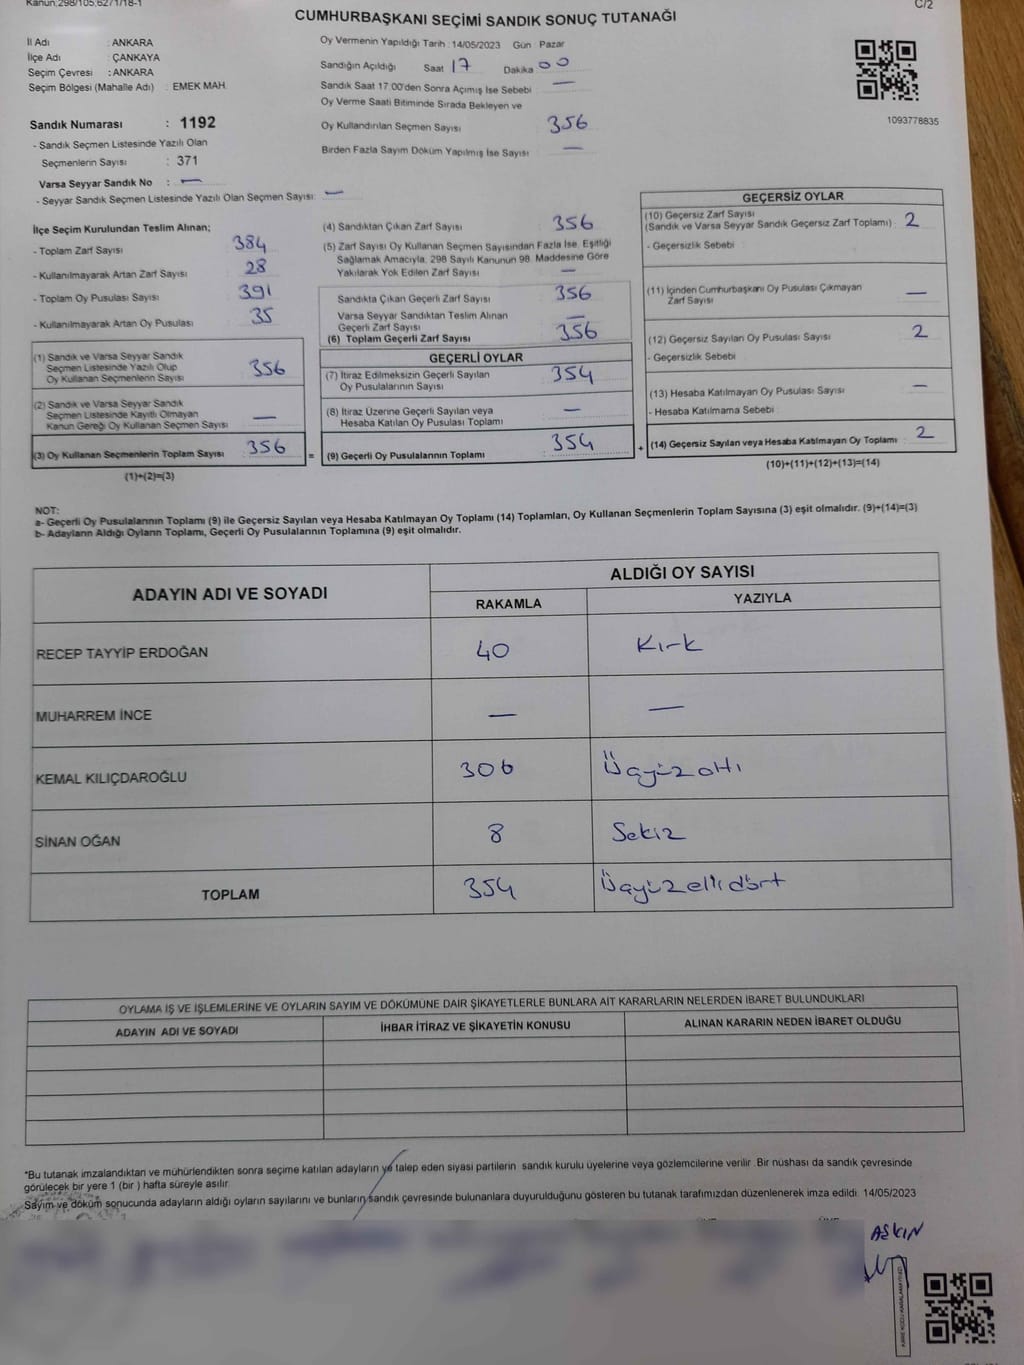 Kanun:298/105,62/1/18-1
C/2
CUMHURBAŞKANI SEÇİMİ SANDIK SONUÇ TUTANAĞI
İl Adı : ANKARA
İlçe Adı : ÇANKAYA
Seçim Çevresi : ANKARA
Seçim Bölgesi (Mahalle Adı) : EMEK MAH.
Sandık Numarası : 1192
- Sandık Seçmen Listesinde Yazılı Olan
Seçmenlerin Sayısı : 371
Varsa Seyyar Sandık No : —
- Seyyar Sandık Seçmen Listesinde Yazılı Olan Seçmen Sayısı: —
Oy Vermenin Yapıldığı Tarih : 14/05/2023 Gün Pazar
Sandığın Açıldığı Saat 17 Dakika 00
Sandık Saat 17:00'den Sonra Açımış İse Sebebi —
Oy Verme Saati Bitiminde Sırada Bekleyen ve
Oy Kullandırılan Seçmen Sayısı 356
Birden Fazla Sayım Döküm Yapılmış İse Sayısı —
1093778835
İlçe Seçim Kurulundan Teslim Alınan;
- Toplam Zarf Sayısı 384
- Kullanılmayarak Artan Zarf Sayısı 28
- Toplam Oy Pusulası Sayısı 391
- Kullanılmayarak Artan Oy Pusulası 35
(1) Sandık ve Varsa Seyyar Sandık
Seçmen Listesinde Yazılı Olup
Oy Kullanan Seçmenlerin Sayısı 356
(2) Sandık ve Varsa Seyyar Sandık
Seçmen Listesinde Kayıtlı Olmayan
Kanun Gereği Oy Kullanan Seçmen Sayısı —
(3) Oy Kullanan Seçmenlerin Toplam Sayısı 356
(1)+(2)=(3)
(4) Sandıktan Çıkan Zarf Sayısı 356
(5) Zarf Sayısı Oy Kullanan Seçmen Sayısından Fazla İse, Eşitliği
Sağlamak Amacıyla, 298 Sayılı Kanunun 98. Maddesine Göre
Yakılarak Yok Edilen Zarf Sayısı —
Sandıkta Çıkan Geçerli Zarf Sayısı 356
Varsa Seyyar Sandıktan Teslim Alınan
Geçerli Zarf Sayısı —
(6) Toplam Geçerli Zarf Sayısı 356
GEÇERLİ OYLAR
(7) İtiraz Edilmeksizin Geçerli Sayılan
Oy Pusulalarının Sayısı 354
(8) İtiraz Üzerine Geçerli Sayılan veya
Hesaba Katılan Oy Pusulası Toplamı —
= (9) Geçerli Oy Pusulalarının Toplamı 354
GEÇERSİZ OYLAR
(10) Geçersiz Zarf Sayısı
(Sandık ve Varsa Seyyar Sandık Geçersiz Zarf Toplamı) 2
- Geçersizlik Sebebi
(11) İçinden Cumhurbaşkanı Oy Pusulası Çıkmayan
Zarf Sayısı —
(12) Geçersiz Sayılan Oy Pusulası Sayısı 2
- Geçersizlik Sebebi
(13) Hesaba Katılmayan Oy Pusulası Sayısı —
- Hesaba Katılmama Sebebi
+ (14) Geçersiz Sayılan veya Hesaba Katılmayan Oy Toplamı 2
(10)+(11)+(12)+(13)=(14)
NOT:
a- Geçerli Oy Pusulalarının Toplamı (9) ile Geçersiz Sayılan veya Hesaba Katılmayan Oy Toplamı (14) Toplamları, Oy Kullanan Seçmenlerin Toplam Sayısına (3) eşit olmalıdır. (9)+(14)=(3)
b- Adayların Aldığı Oyların Toplamı, Geçerli Oy Pusulalarının Toplamına (9) eşit olmalıdır.
ADAYIN ADI VE SOYADI
ALDIĞI OY SAYISI
RAKAMLA YAZIYLA
RECEP TAYYİP ERDOĞAN 40 Kırk
MUHARREM İNCE — —
KEMAL KILIÇDAROĞLU 306 Üçyüzaltı
SİNAN OĞAN 8 Sekiz
TOPLAM 354 Üçyüzellidört
OYLAMA İŞ VE İŞLEMLERİNE VE OYLARIN SAYIM VE DÖKÜMÜNE DAİR ŞİKAYETLERLE BUNLARA AİT KARARLARIN NELERDEN İBARET BULUNDUKLARI
ADAYIN ADI VE SOYADI İHBAR İTİRAZ VE ŞİKAYETİN KONUSU ALINAN KARARIN NEDEN İBARET OLDUĞU
*Bu tutanak imzalandıktan ve mühürlendikten sonra seçime katılan adayların ve talep eden siyasi partilerin sandık kurulu üyelerine veya gözlemcilerine verilir. Bir nüshası da sandık çevresinde
görülecek bir yere 1 (bir) hafta süreyle asılır.
Sayım ve döküm sonucunda adayların aldığı oyların sayılarını ve bunların sandık çevresinde bulunanlara duyurulduğunu gösteren bu tutanak tarafımızdan düzenlenerek imza edildi. 14/05/2023
AŞKIN